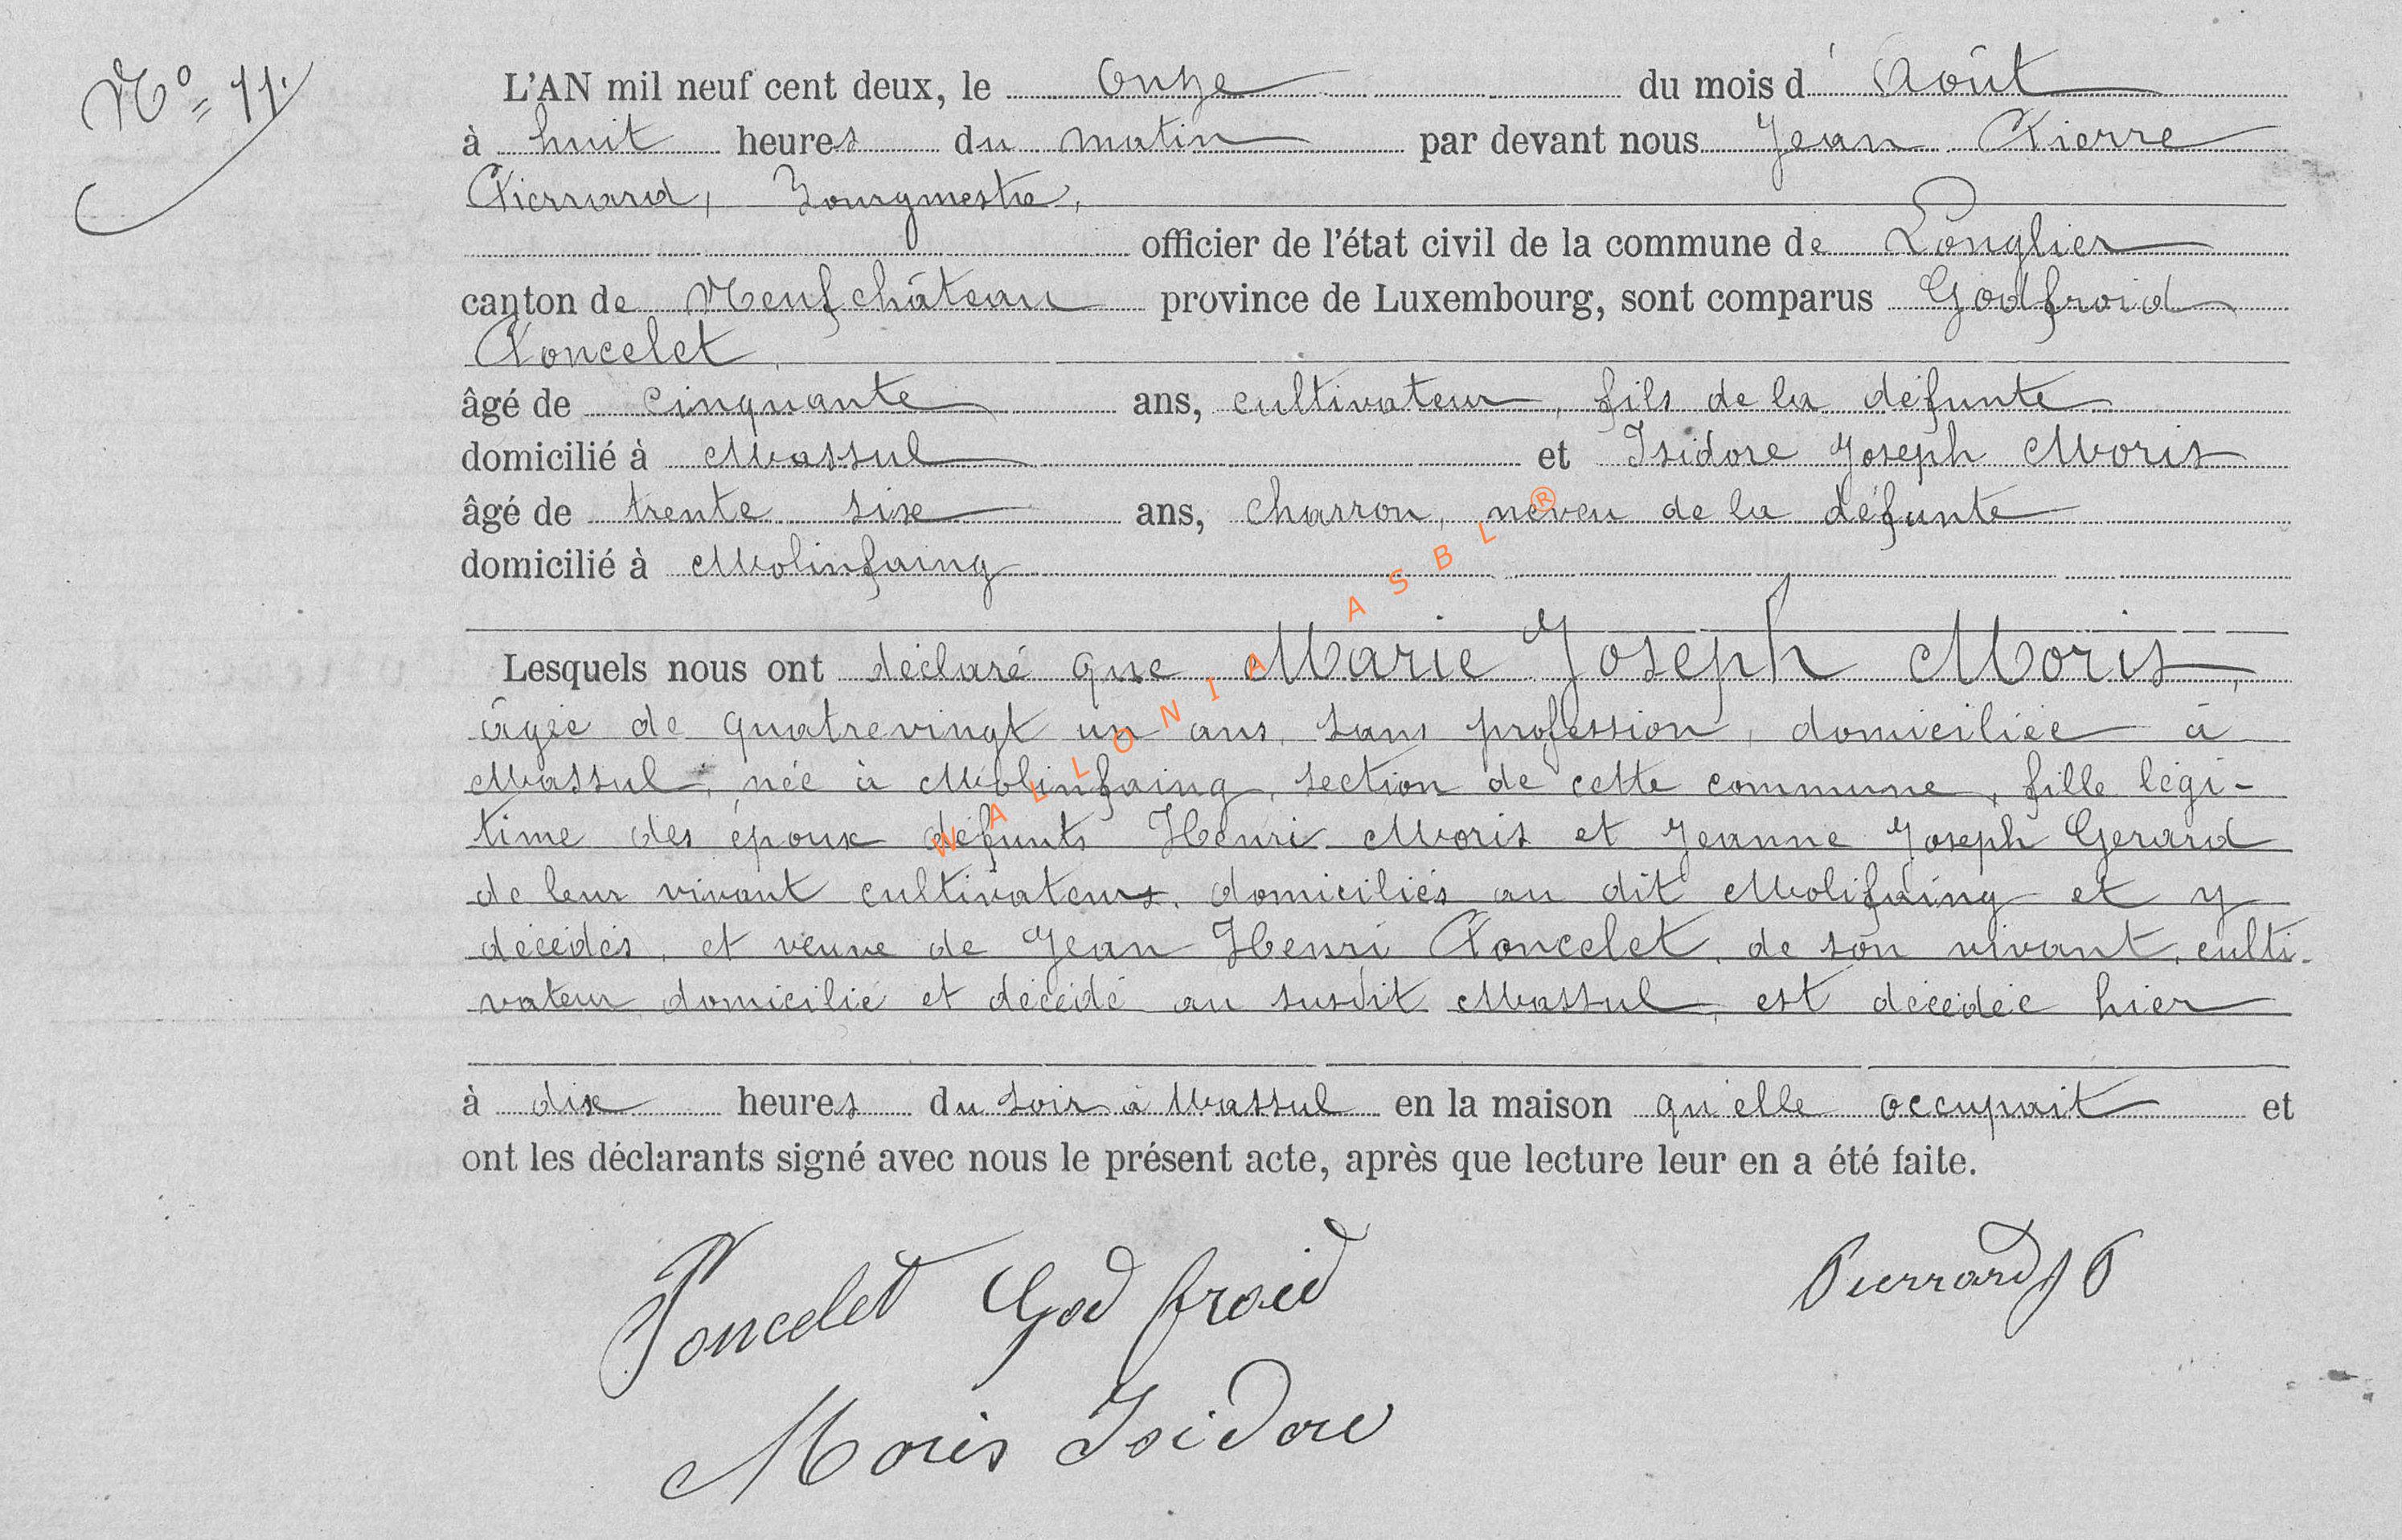 Nº 11.
L'AN mil neuf cent deux, le onze du mois d'Août
à huit heures du matin par devant nous Jean Pierre
Pierrard, Bourgmestre,
officier de l'état civil de la commune de Longlier
canton de Neufchâteau province de Luxembourg, sont comparus Godfroid
Poncelet,
âgé de cinquante ans, cultivateur, fils de la défunte
domicilié à Massul et Isidore Joseph Moris
âgé de trente six ans, charron, neveu de la défunte
domicilié à Molinfaing
Lesquels nous ont déclaré que Marie Joseph Moris,
âgée de quatrevingt un ans, sans profession, domiciliée à
Massul, née à Molinfaing, section de cette commune, fille légi-
time des époux défunts Henri Moris et Jeanne Joseph Gerard
de leur vivant cultivateurs, domiciliés au dit Molifaing et y
décédés, et veuve de Jean Henri Poncelet, de son vivant, culti-
vateur domicilié et décédé au susdit Massul, est décédée hier
à dix heures du soir à Massul en la maison qu'elle occupait et
ont les déclarants signé avec nous le présent acte, après que lecture leur en a été faite.
Poncelet Godfroid Pierrard JP
Moris Isidore
WALLONIA ASBL ®